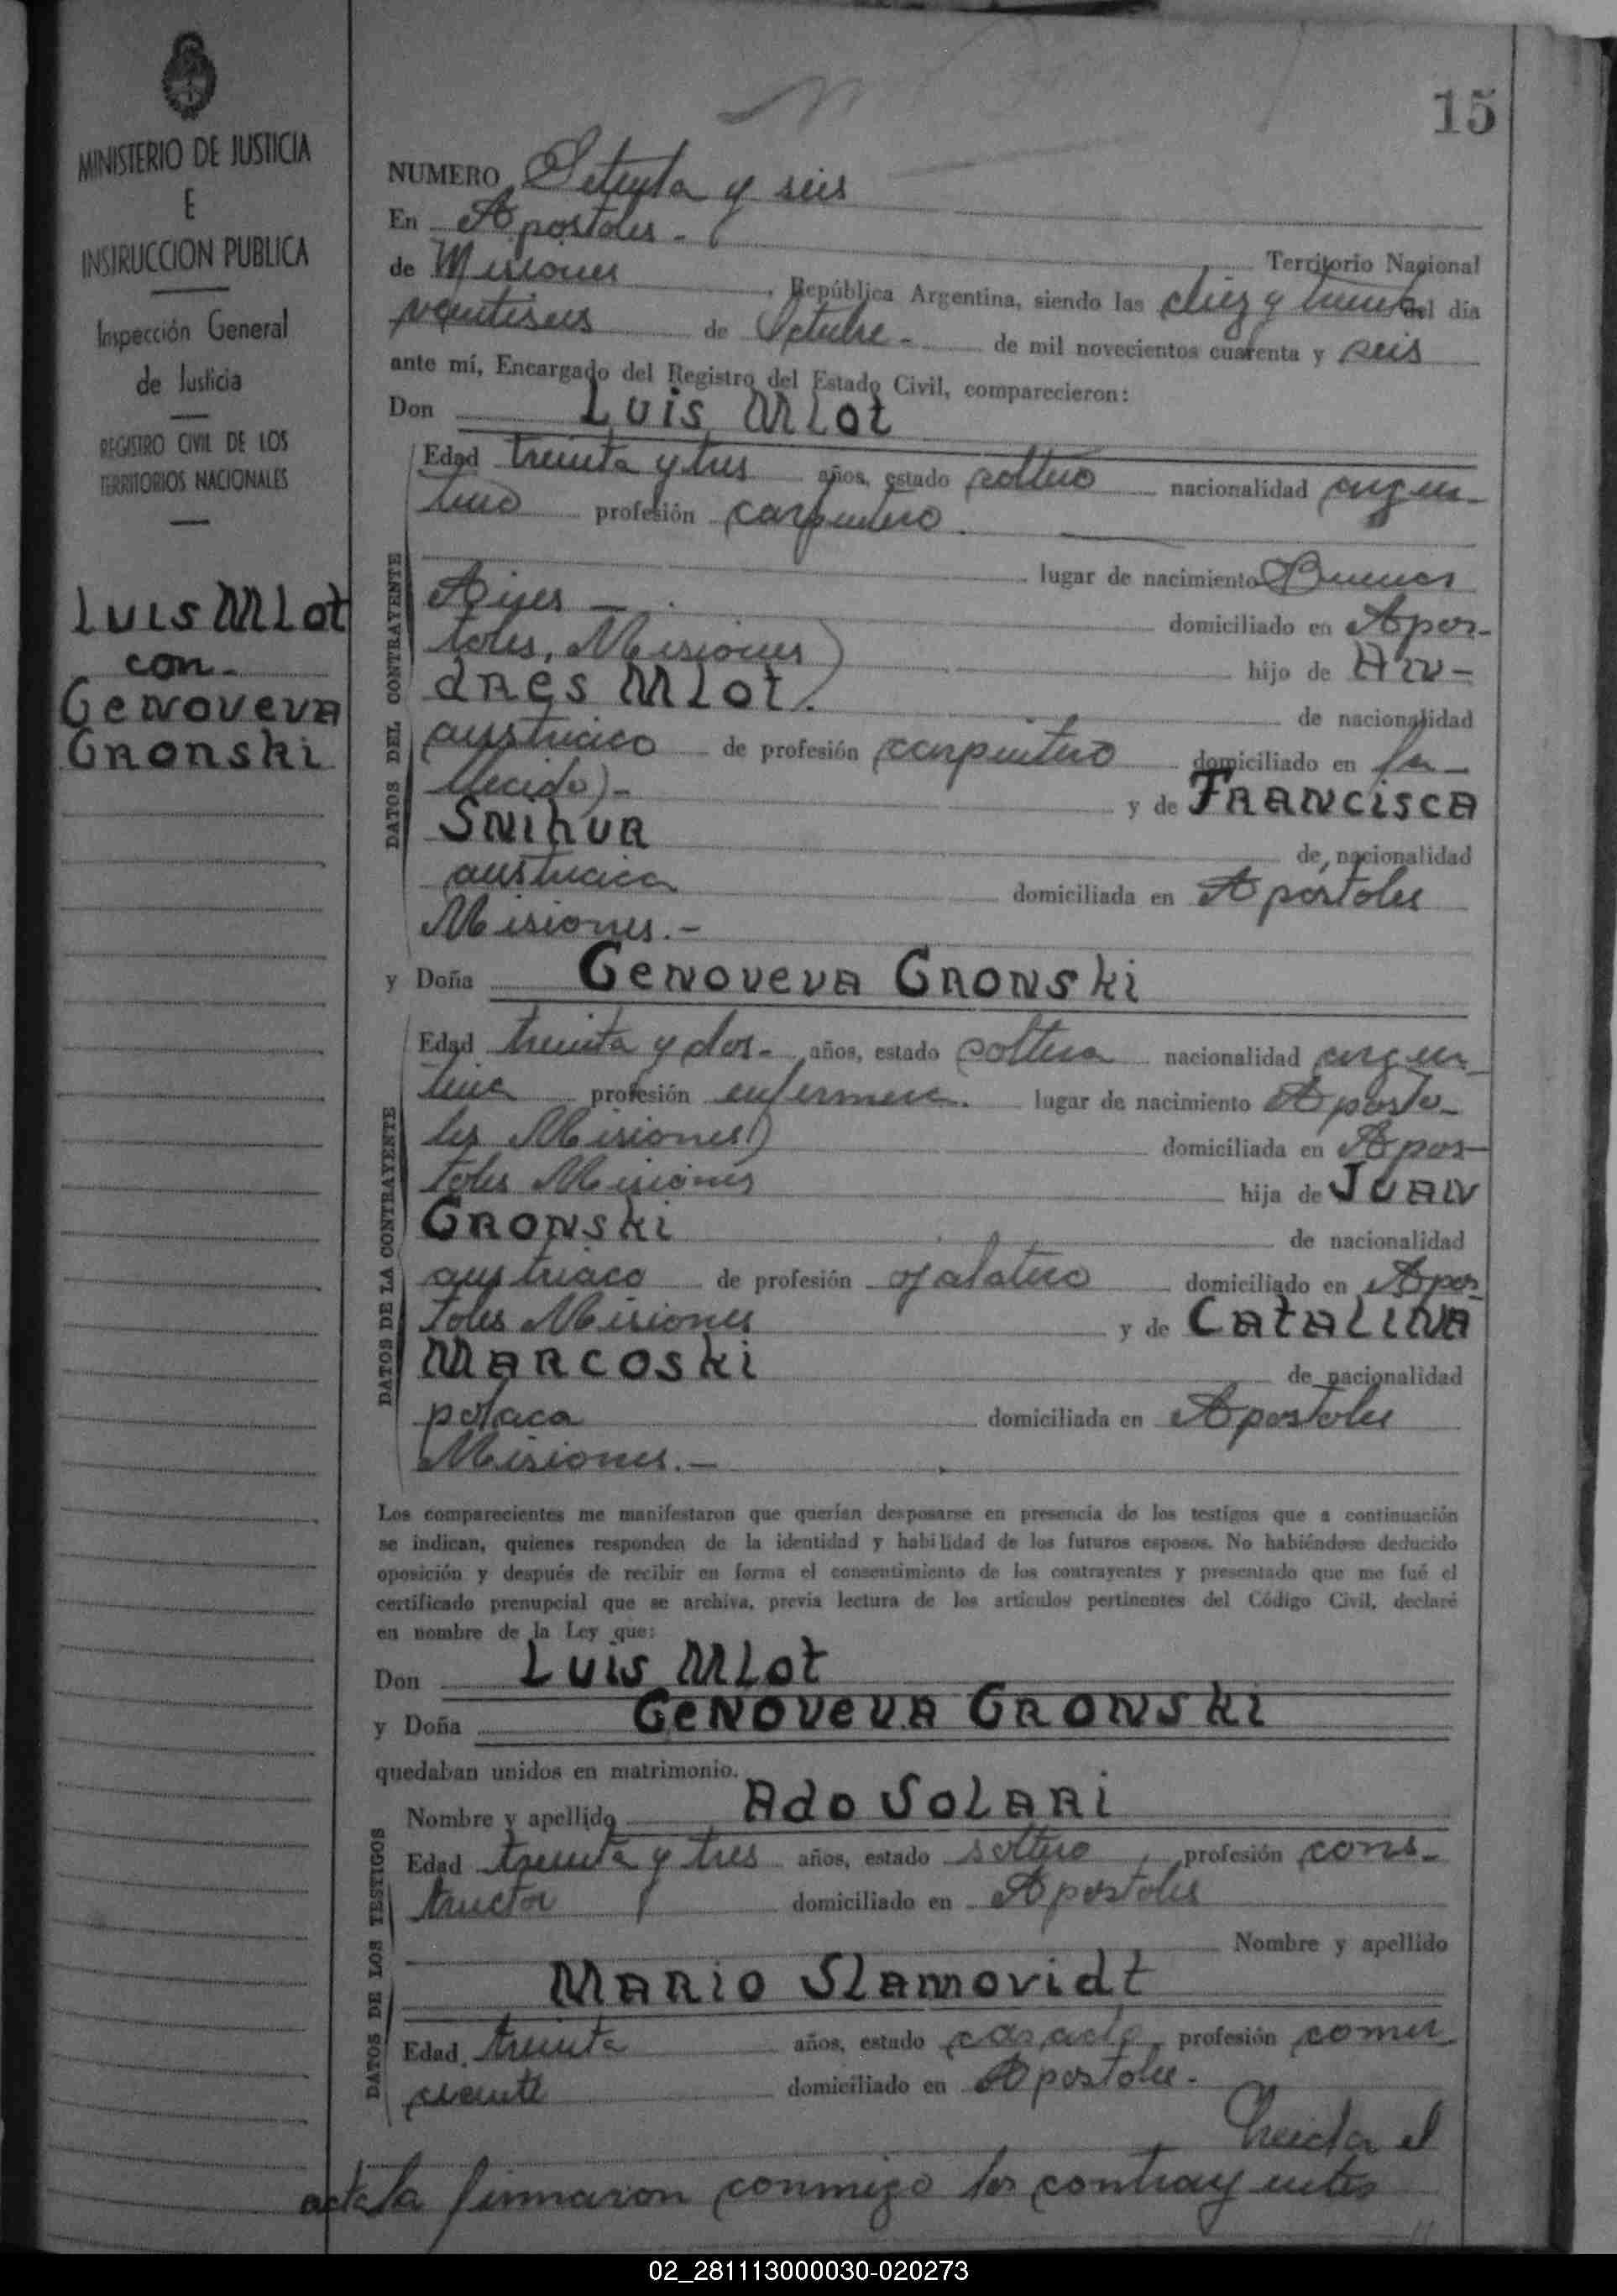 15
MINISTERIO DE JUSTICIA
E
INSTRUCCION PUBLICA
Inspección General
de Justicia
REGISTRO CIVIL DE LOS
TERRITORIOS NACIONALES
Luis Mlot
con
Genoveva
Gronski
NUMERO Setenta y seis
En Apostoles - Territorio Nacional
de Misiones, República Argentina, siendo las diez y treinta del día
veintiseis de Octubre - de mil novecientos cuarenta y seis
ante mí, Encargado del Registro del Estado Civil, comparecieron:
Don Luis Mlot
DATOS DEL CONTRAYENTE
Edad treinta y tres años, estado soltero nacionalidad argen-
tino profesión carpintero
lugar de nacimiento Buenos
Aires - domiciliado en Apos-
toles, Misiones) hijo de An-
dres Mlot. de nacionalidad
austriaco de profesión carpintero domiciliado en fa-
llecido)- y de Francisca
Snihur de nacionalidad
austriaca domiciliada en Apóstoles
Misiones.-
y Doña Genoveva Gronski
DATOS DE LA CONTRAYENTE
Edad treinta y dos- años, estado soltera nacionalidad argen-
tina profesión enfermera. lugar de nacimiento Aposto-
les Misiones) domiciliada en Apos-
toles Misiones hija de Juan
Gronski de nacionalidad
austriaco de profesión ojalatero domiciliado en Apos-
toles Misiones y de Catalina
Marcoski de nacionalidad
polaca domiciliada en Apostoles
Misiones.-
Los comparecientes me manifestaron que querían desposarse en presencia de los testigos que a continuación
se indican, quienes responden de la identidad y habilidad de los futuros esposos. No habiéndose deducido
oposición y después de recibir en forma el consentimiento de los contrayentes y presentado que me fué el
certificado prenupcial que se archiva, previa lectura de los artículos pertinentes del Código Civil, declaré
en nombre de la Ley que:
Don Luis Mlot
y Doña Genoveva Gronski
quedaban unidos en matrimonio.
DATOS DE LOS TESTIGOS
Nombre y apellido Ado Solari
Edad treinta y tres años, estado soltero, profesión cons-
tructor domiciliado en Apostoles
Nombre y apellido
Mario Slamovidt
Edad treinta años, estado casado profesión comer
ciante domiciliado en Apostoles.
Leida el
acta la firmaron conmigo los contrayentes
02_281113000030-020273